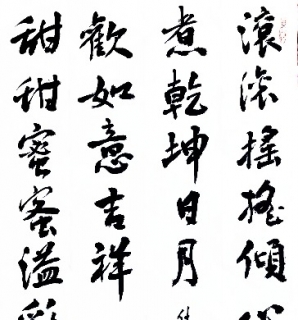 滚滚摇摇傾
煮乾坤日月
歡如意吉祥
甜甜蜜蜜溢彩